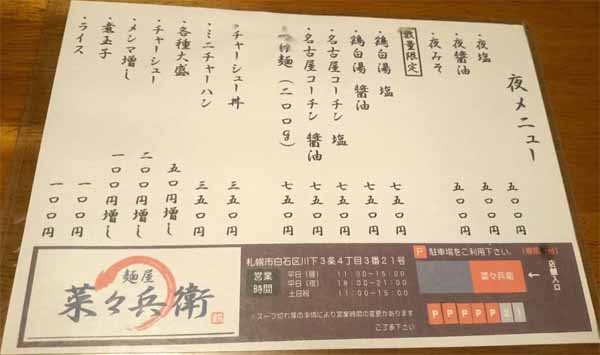 夜メニュー
・夜塩 五〇〇円
・夜醤油 五〇〇円
・夜みそ 五〇〇円
数量限定
・鶏白湯 塩 七五〇円
・鶏白湯 醤油 七五〇円
・名古屋コーチン 塩 七五〇円
・名古屋コーチン 醤油 七五〇円
つけ麺(二〇〇g) 七五〇円
・チャーシュー丼 三五〇円
・ミニチャーハン 三五〇円
・各種大盛 五〇円増し
・チャーシュー 二〇〇円増し
・メンマ増し 一〇〇円増し
・煮玉子 一〇〇円
・ライス 一〇〇円
麺屋
菜々兵衛
札幌市白石区川下3条4丁目3番21号
営業時間
平日(昼) 11:00~15:00
平日(夜) 18:00~21:00
土日祝 11:00~15:00
*スープ切れ等の事情により営業時間の変更があります
ご了承下さい
P 駐車場をご利用下さい。
店舗入口
菜々兵衛
P P P P P 2 1